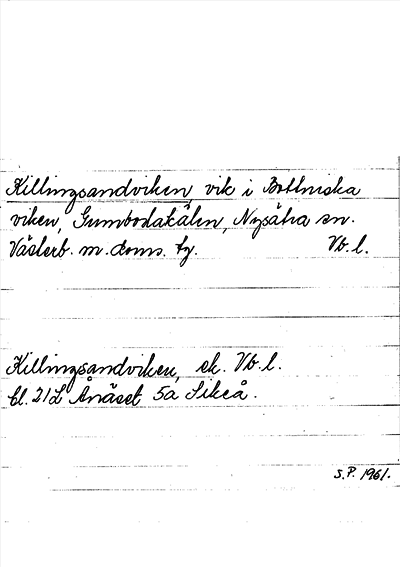 Killingsandviken, vik i Bottniska
viken, Gumbodakålen, Nysätra sn.
Västerb. m. doms. tg. Vb. l.
Killingsandviken, ek. Vb. l.
bl. 21L Ånäset 5a Sikeå.
S.P. 1961.